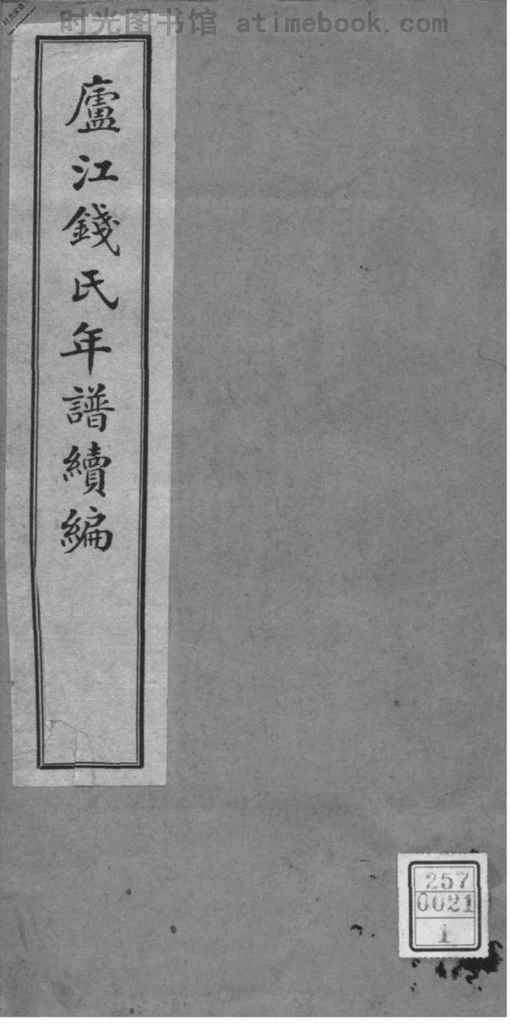 时光图书馆 atimebook.com
廬江錢氏年譜續編
257
0021
1